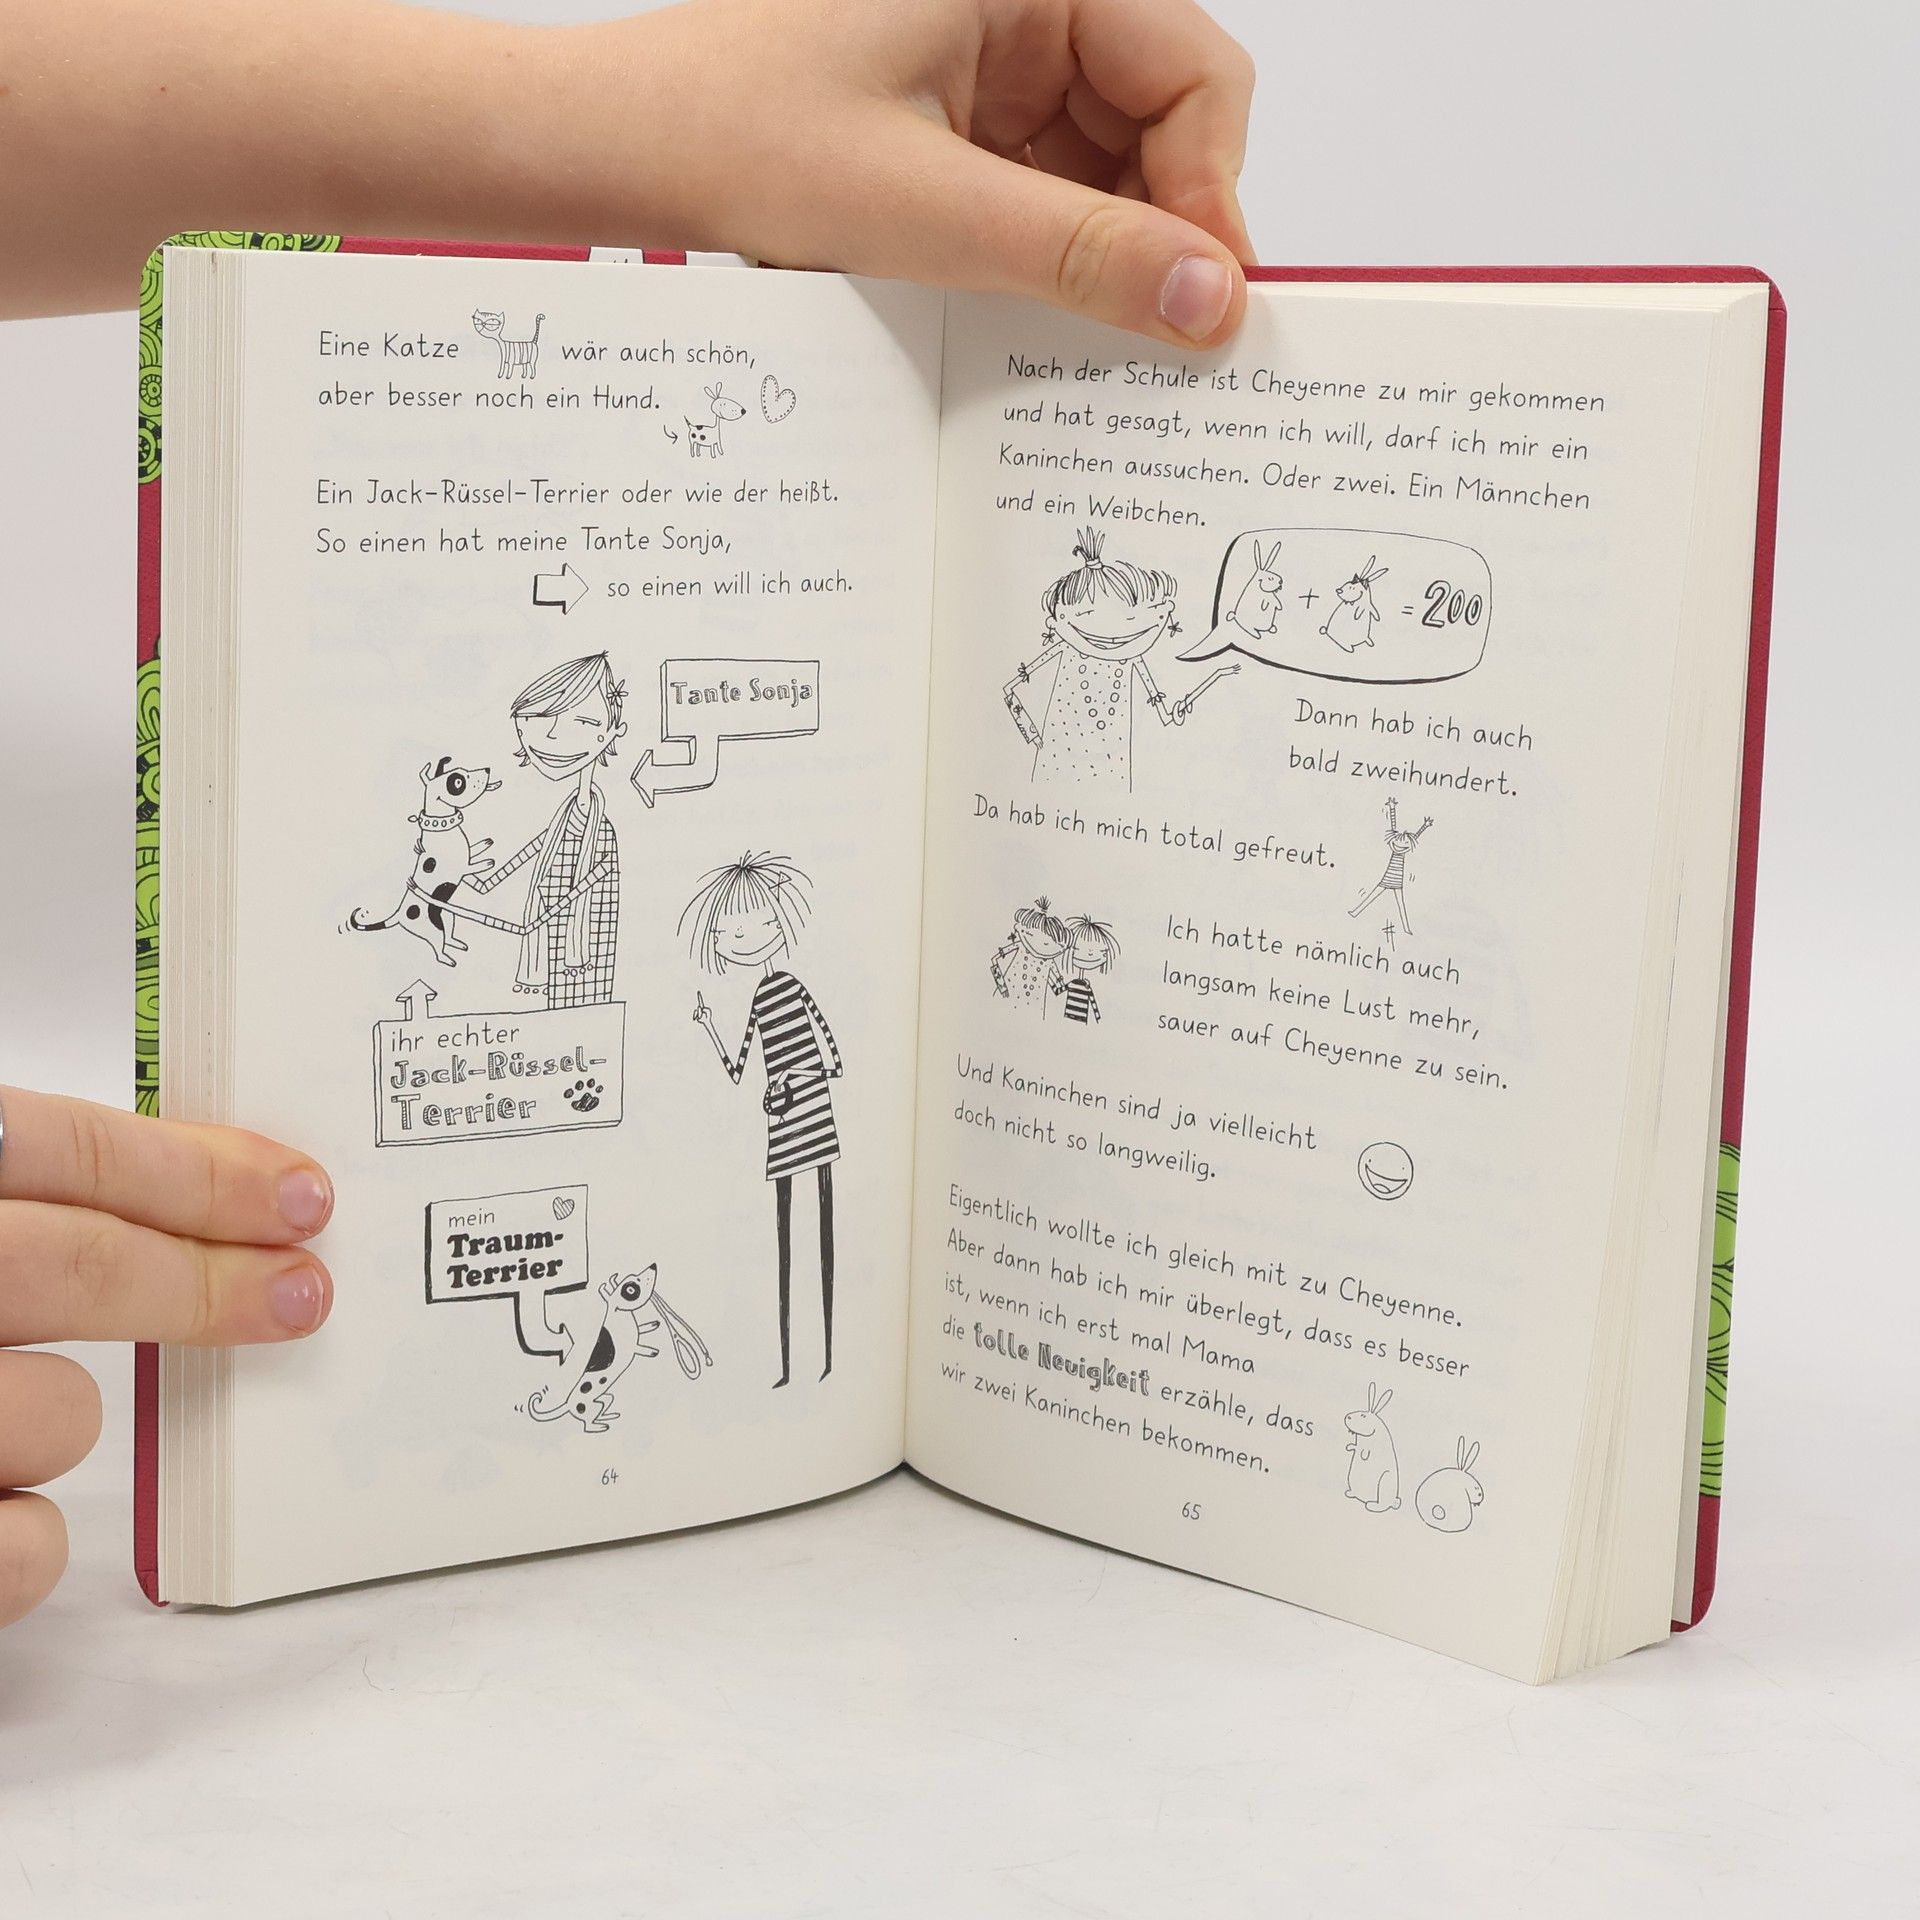 Eine Katze wär auch schön,
aber besser noch ein Hund.
Ein Jack-Rüssel-Terrier oder wie der heißt.
So einen hat meine Tante Sonja,
so einen will ich auch.
Tante Sonja
ihr echter
Jack-Rüssel-
Terrier
mein
Traum-
Terrier
64
Nach der Schule ist Cheyenne zu mir gekommen
und hat gesagt, wenn ich will, darf ich mir ein
Kaninchen aussuchen. Oder zwei. Ein Männchen
und ein Weibchen.
+ = 200
Dann hab ich auch
bald zweihundert.
Da hab ich mich total gefreut.
Ich hatte nämlich auch
langsam keine Lust mehr,
sauer auf Cheyenne zu sein.
Und Kaninchen sind ja vielleicht
doch nicht so langweilig.
Eigentlich wollte ich gleich mit zu Cheyenne.
Aber dann hab ich mir überlegt, dass es besser
ist, wenn ich erst mal Mama
die tolle Neuigkeit erzähle, dass
wir zwei Kaninchen bekommen.
65